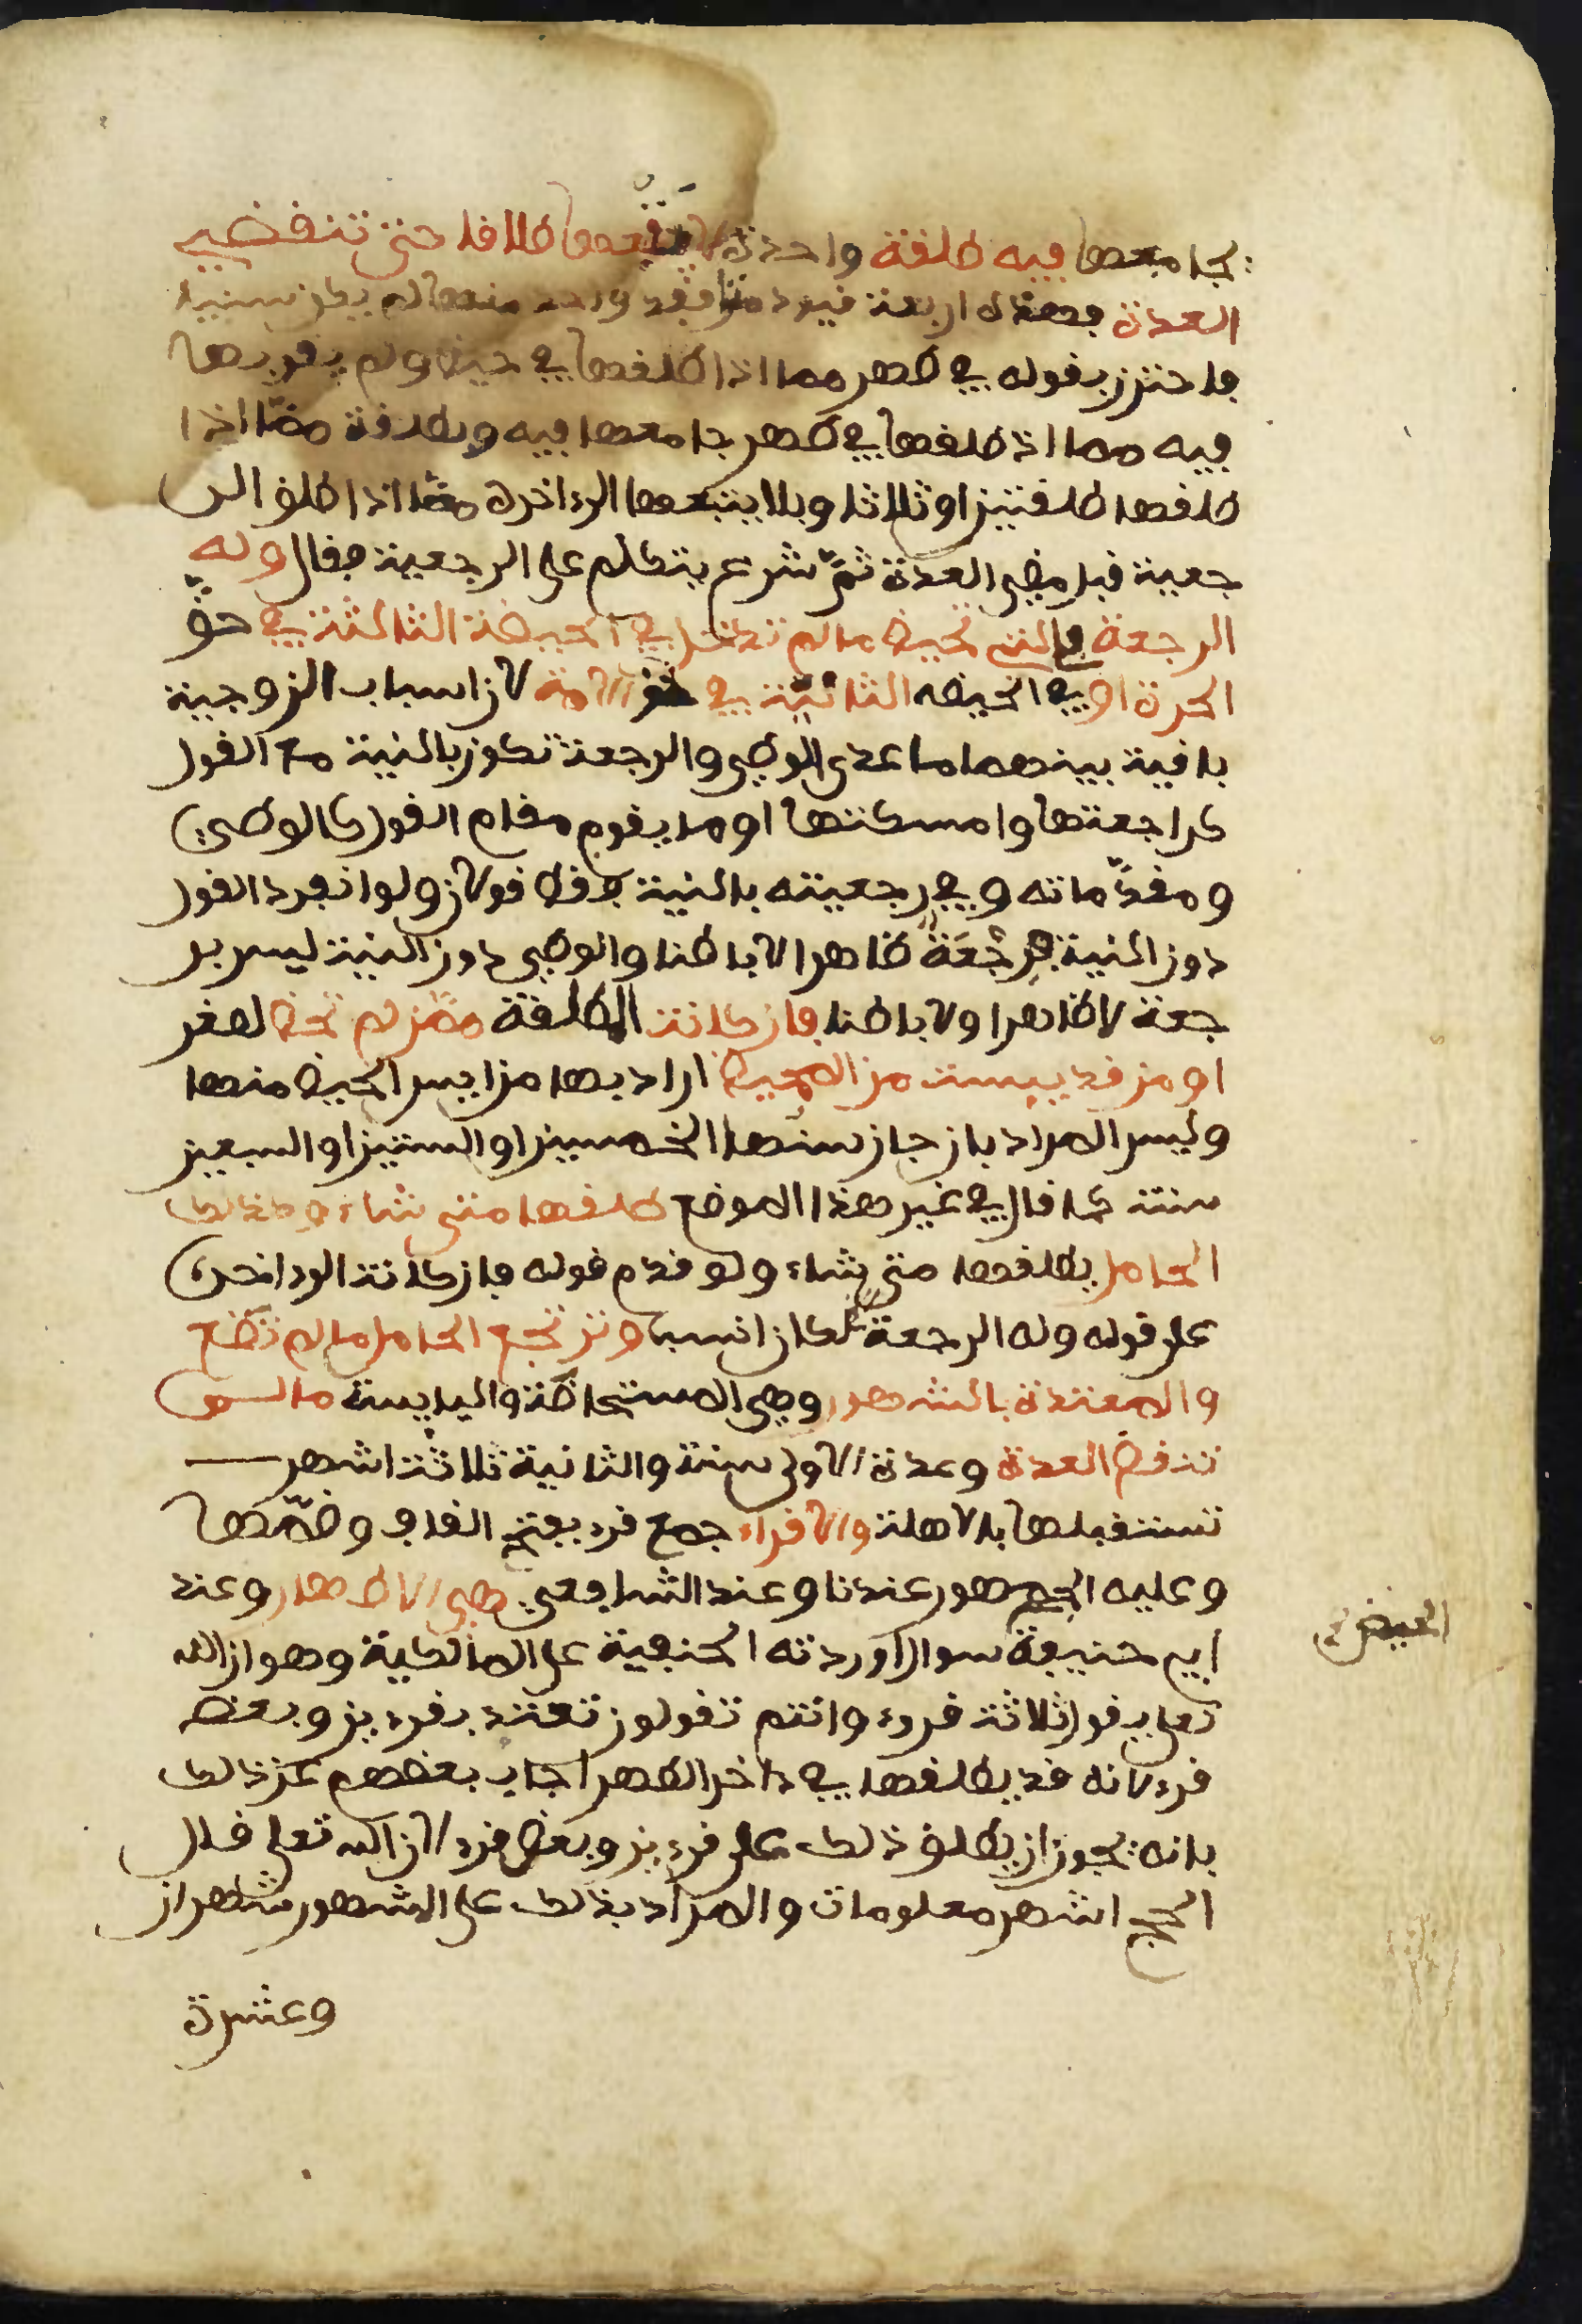 يجامعها فيه طلقة واحدة لا يتبعها طلاقا حتى تنقضي
العدة فهذه اربعة قيود متى فقد واحد منها لم يكن سنيا
فاحترز بقوله في طهر مما اذا طلقها في حيض ولم يقربها
فيه مما اذ طلقها في طهر جامعها فيه وبطلقة مما اذا
طلقها طلقتين او ثلاثا وبلا يتبعها الى ءاخره مما اذا طلق الر
جعية قبل مضي العدة ثم شرع يتكلم على الرجعية فقال وله
الرجعة في التي تحيض ما لم تدخل في الحيضة الثالثة في حق
الحرة او في الحيضه الثانية في حق الامة لان اسباب الزوجية
باقية بينهما ما عدى الوطي والرجعة تكون بالنية مع القول
كراجعتها وامسكتها او ما يقوم مقام القول كالوطي
ومقدماته وفي رجعيته بالنية فقط قولان ولو انفرد القول
دون النية فرجعة ظاهرا لا باطنا والوطي دون النية ليس بر
جعة لا ظاهرا ولا باطنا فان كانت المطلقة ممن لم تحض لصغر
او من قد يبست من المحيض اراد بها من ايس الحيض منها
وليس المراد بان جاز سنها الخمسين او الستين او السبعين
سنة كما قال في غير هذا الموضع طلقها متى شاء وكذلك
الحامل يطلقها متى شاء ولو قدم قوله فان كانت الى ءاخره
على قوله وله الرجعة لكان انسب وترتجع الحامل ما لم تضع
والمعتدة بالشهور وهي المستحاضة واليابسة ما لم
تنقض العدة وعدة الاولى سنة والثانية ثلاثة اشهر
تستقبلها بالاهلة والاقراء جمع قرء بفتح القاف وضمها
وعليه الجمهور عندنا وعند الشافعي هي الاطهار وعند
ابي حنيفة سوال اوردته الحنفية على المالكية وهو ان الله
تعلى يقول ثلاثة قروء وانتم تقولون تعتد بقرءين وبعض
قرء لانه قد يطلقها في ءاخر الطهر اجاب بعضهم عن ذلك
بانه يجوز ان يطلق ذلك على قرءين وبعض قرء لان الله تعلى قال
الحج اشهر معلومات والمراد بذلك على المشهور شهران
وعشرة
الحيض